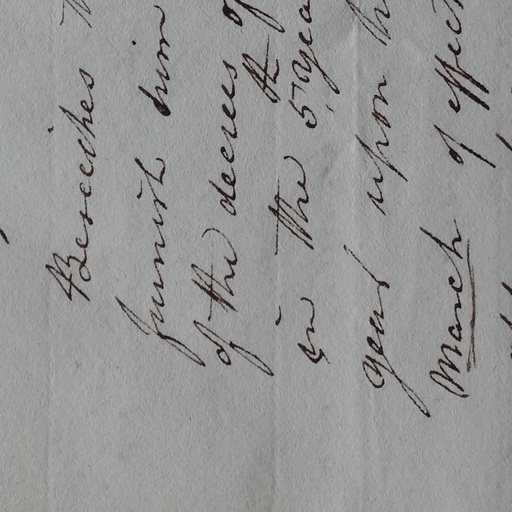 Beseeches
furnish him
of the decrees of
in the 5th year
year upon
March of effect